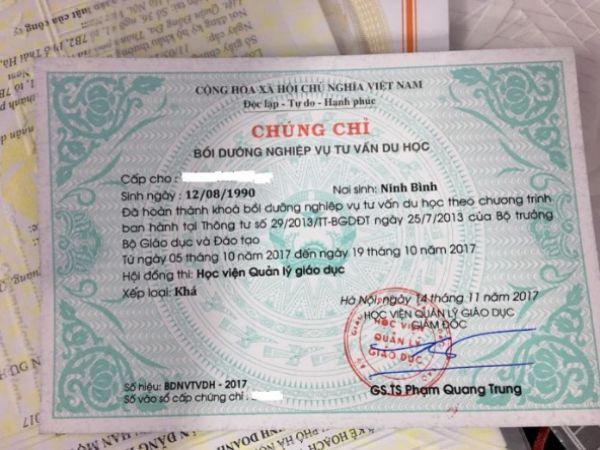 CỘNG HÒA XÃ HỘI CHỦ NGHĨA VIỆT NAM
Độc lập - Tự do - Hạnh phúc
CHỨNG CHỈ
BỒI DƯỠNG NGHIỆP VỤ TƯ VẤN DU HỌC
Cấp cho :
Sinh ngày : 12/08/1990 Nơi sinh: Ninh Bình
Đã hoàn thành khoá bồi dưỡng nghiệp vụ tư vấn du học theo chương trình
ban hành tại Thông tư số 29/2013/TT-BGDĐT ngày 25/7/2013 của Bộ trưởng
Bộ Giáo dục và Đào tạo
Từ ngày 05 tháng 10 năm 2017 đến ngày 19 tháng 10 năm 2017
Hội đồng thi: Học viện Quản lý giáo dục
Xếp loại: Khá
Hà Nội, ngày 14 tháng 11 năm 2017
HỌC VIỆN QUẢN LÝ GIÁO DỤC
GIÁM ĐỐC
HỌC VIỆN
QUẢN LÝ
GIÁO DỤC
Số hiệu: BDNVTVDH - 2017
Số vào sổ cấp chứng chỉ :
GS.TS Phạm Quang Trung